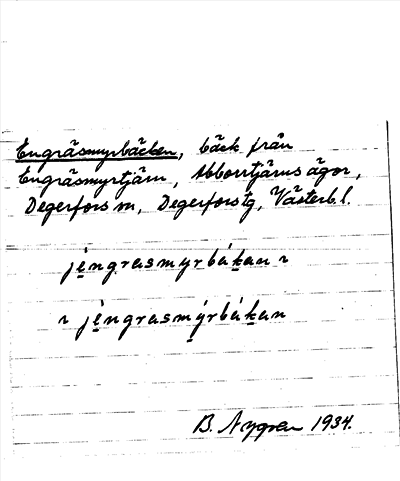 Engräsmyrbäcken, bäck från
Engräsmyrtjärn, Abborrtjärns ägor,
Degerfors sn, Degerfors tg, Västerb. l.
jèngrasmyrbäkan ɿ
ɿ jèngrasmýrbäkan
B. Nygren 1934.